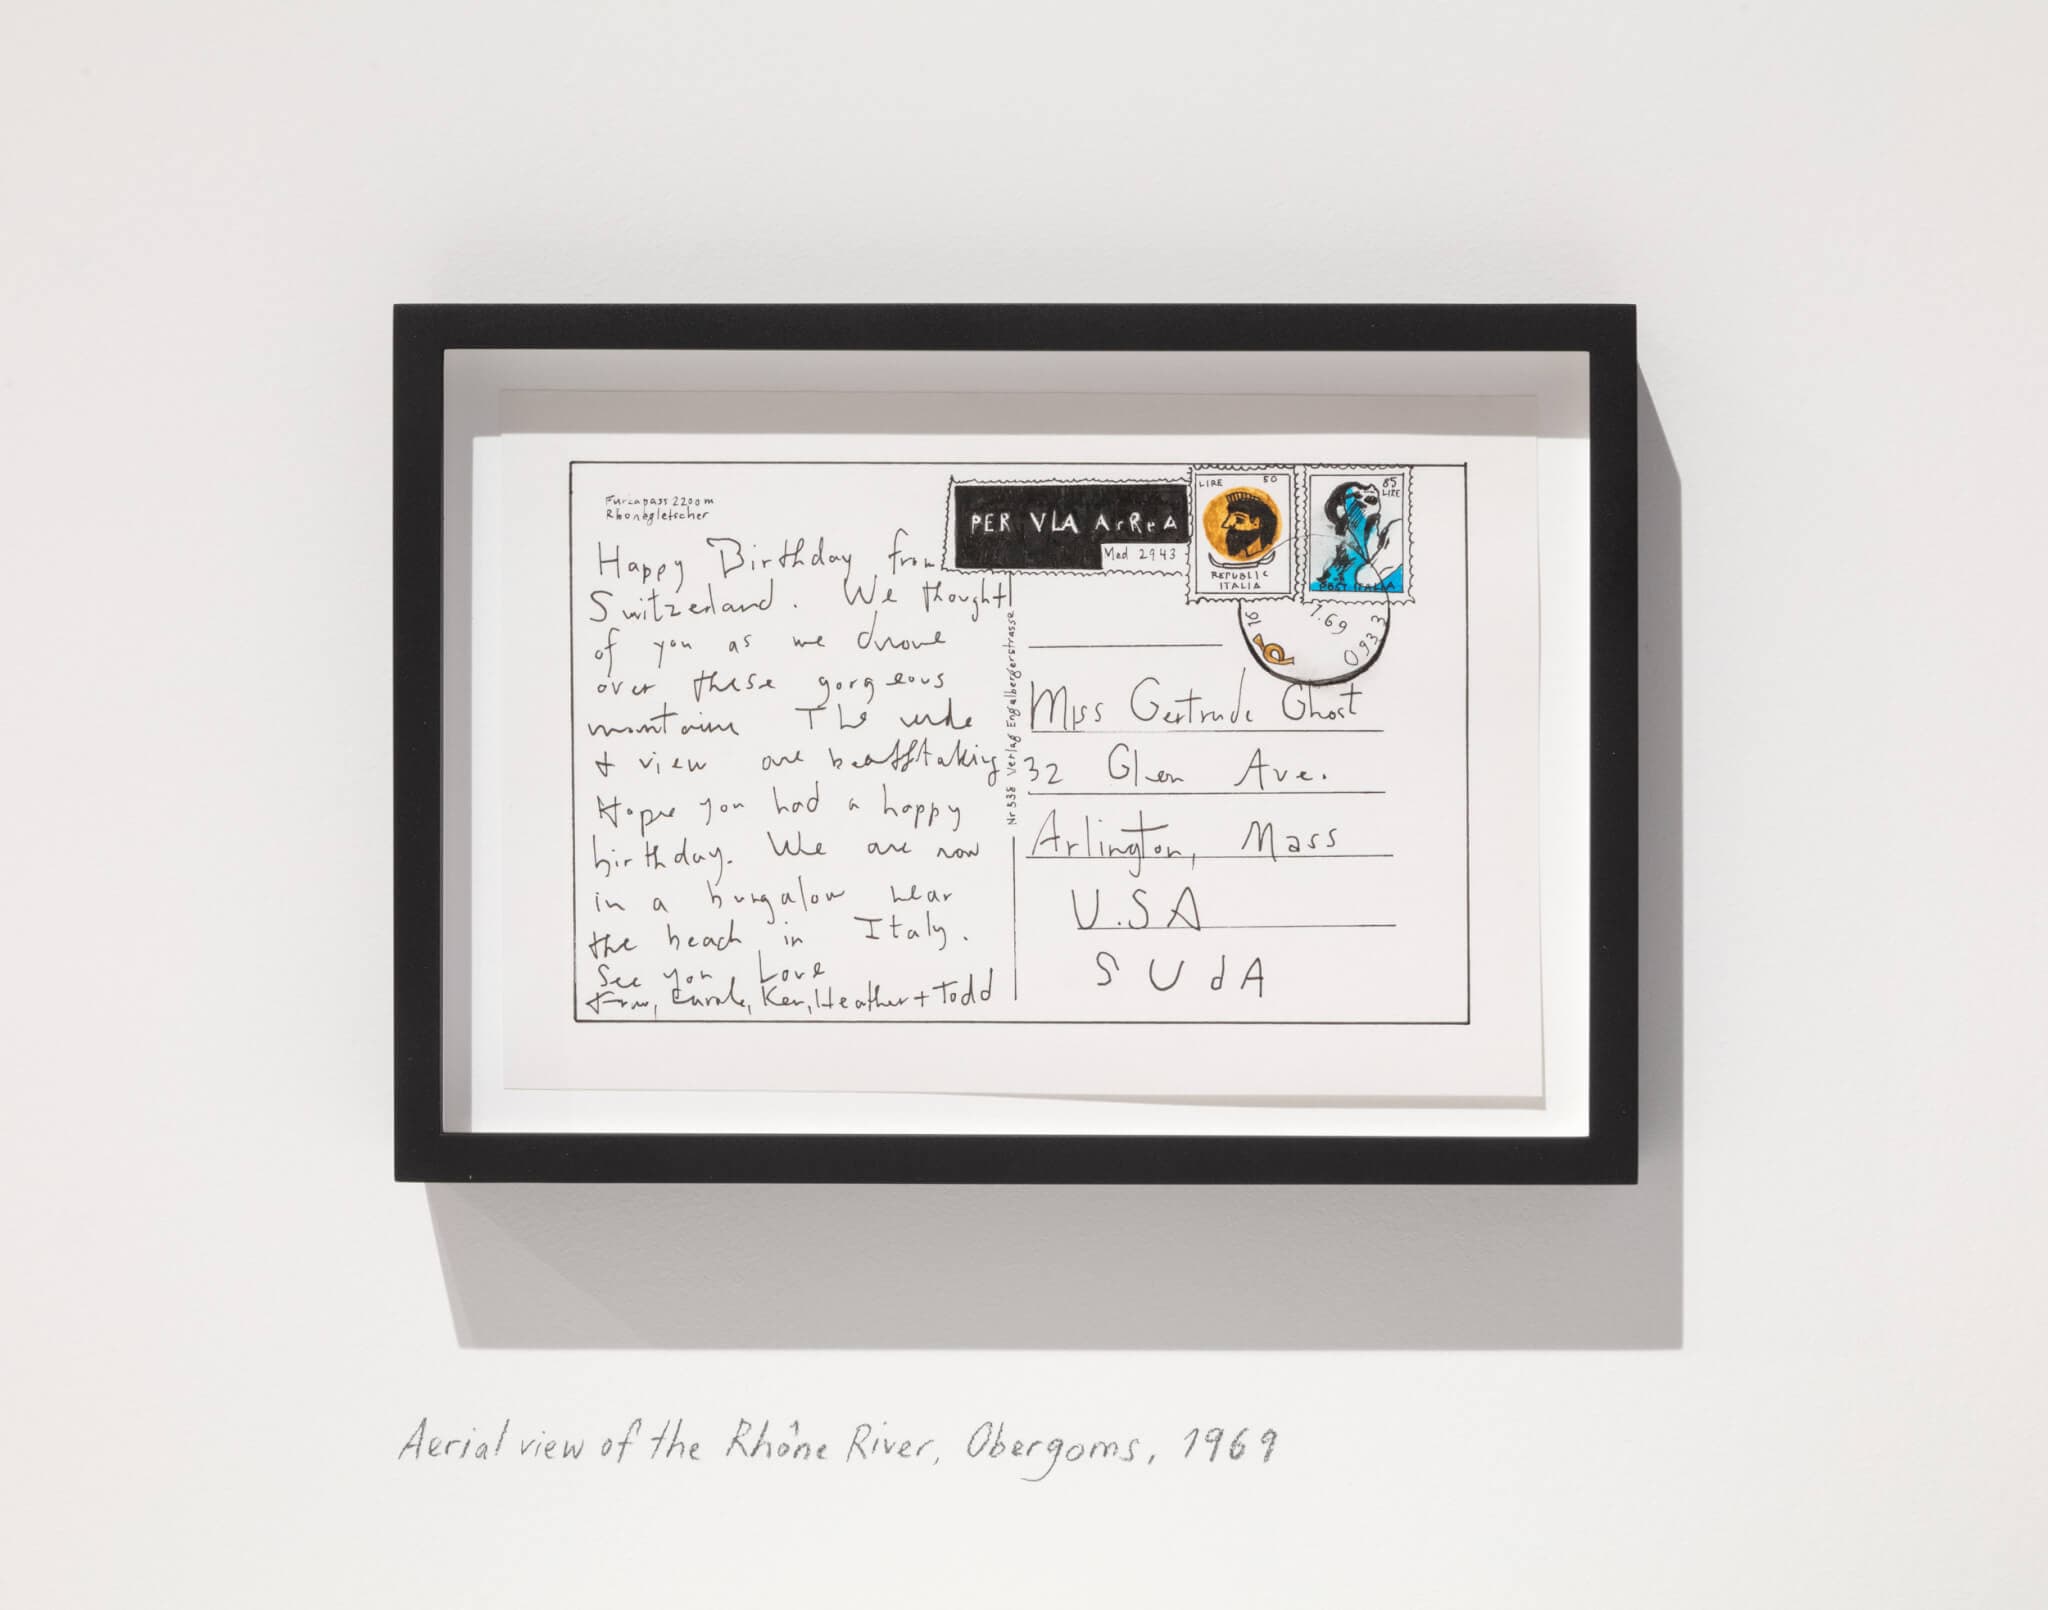 Furcapass 2200m
Rhonegletscher
Happy Birthday from
Switzerland. We thought
of you as we drove
over these gorgeous
mountains The
& view are
Hope you had a happy
birthday. We are now
in a bungalow near
the beach in Italy.
See you Love
Carole, Ken, Heather + Todd
Nr 538 Verlag Engelbergerstrasse
PER VIA AeReA
Mod 2943
LIRE 50
REPUBLIC
ITALIA
85
LIRE
POST ITALIA
16 7.69 0933
Miss Gertrude Ghost
32 Glen Ave.
Arlington, Mass
U.S.A
S U d A
Aerial view of the Rhône River, Obergoms, 1969